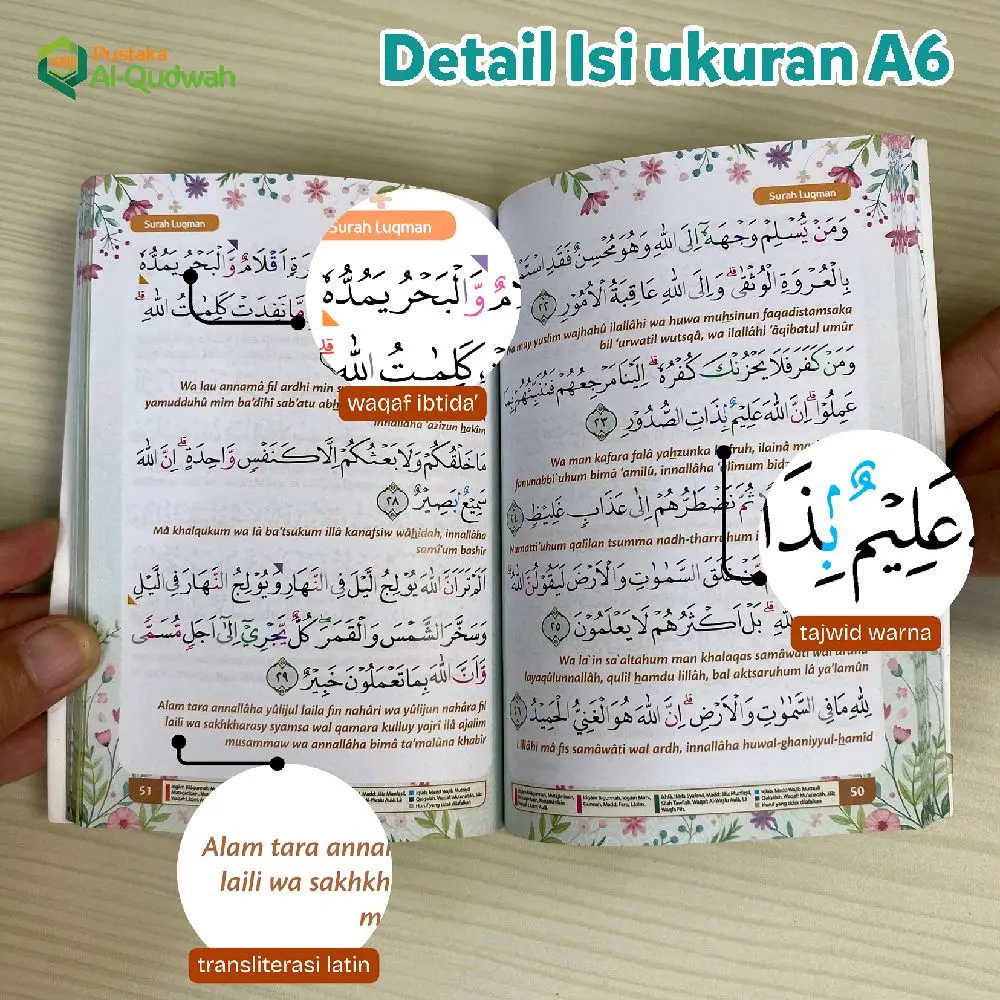 Pustaka
Al-Qudwah
Detail Isi ukuran A6
Surah Luqman
وَمَنْ يُّسْلِمْ وَجْهَهٗٓ اِلَى اللّٰهِ وَهُوَ مُحْسِنٌ فَقَدِ
بِالْعُرْوَةِ الْوُثْقٰىۗ وَاِلَى اللّٰهِ عَاقِبَةُ الْاُمُوْرِ ٢٢
yuslim wajhahû ilallâhi wa huwa muhsinun faqadistamsaka
bil 'urwatil wutsqâ, wa ilallâhi 'âqibatul umûr
وَمَنْ كَفَرَ فَلَا يَحْزُنْكَ كُفْرُهٗۗ اِلَيْنَا مَرْجِعُهُمْ فَنُنَبِّئُهُمْ
عَمِلُوْاۗ اِنَّ اللّٰهَ عَلِيْمٌۢ بِذَاتِ الصُّدُوْرِ ٢٣
Wa man kafara falâ yahzunka kufruh, ilainâ
fanunabbi'uhum bimâ 'amilû, innallâha 'alîmum
ثُمَّ نَضْطَرُّهُمْ اِلٰى عَذَابٍ غَلِيْظٍ ٢٤
Numatti'uhum qalîlan tsumma nadh-tharruhum
خَلَقَ السَّمٰوٰتِ وَالْاَرْضَ لَيَقُوْلُنَّ اللّٰهُ
بَلْ اَكْثَرُهُمْ لَا يَعْلَمُوْنَ ٢٥
Wa la'in sa'altahum man khalaqas samâwâti wal ardha
layaqûlunnallâh, qulil hamdu lillâh, bal aktsaruhum lâ ya'lamûn
لِلّٰهِ مَا فِى السَّمٰوٰتِ وَالْاَرْضِۗ اِنَّ اللّٰهَ هُوَ الْغَنِيُّ الْحَمِيْدُ ٢٦
Lillâhi mâ fis samâwâti wal ardh, innallâha huwal-ghaniyyul-hamîd
50
Surah Luqman
اَقْلَامٌ وَّالْبَحْرُ يَمُدُّهٗ
مَّا نَفِدَتْ كَلِمٰتُ اللّٰهِۗ
Wa lau annamâ fil ardhi min
yamudduhû mim ba'dihî sab'atu
innallâha 'azîzun hakîm
مَا خَلْقُكُمْ وَلَا بَعْثُكُمْ اِلَّا كَنَفْسٍ وَّاحِدَةٍۗ اِنَّ اللّٰهَ
سَمِيْعٌۢ بَصِيْرٌ ٢٨
Mâ khalqukum wa lâ ba'tsukum illâ kanafsiw wâhidah, innallâha
samî'um bashîr
اَلَمْ تَرَ اَنَّ اللّٰهَ يُوْلِجُ الَّيْلَ فِى النَّهَارِ وَيُوْلِجُ النَّهَارَ فِى الَّيْلِ
وَسَخَّرَ الشَّمْسَ وَالْقَمَرَۖ كُلٌّ يَّجْرِيْٓ اِلٰٓى اَجَلٍ مُّسَمًّى
وَّاَنَّ اللّٰهَ بِمَا تَعْمَلُوْنَ خَبِيْرٌ ٢٩
Alam tara annallâha yûlijul laila fin nahâri wa yûlijun nahâra fil
laili wa sakhkharasy syamsa wal qamara kulluy yajrî ilâ ajalim
musammaw wa annallâha bimâ ta'malûna khabîr
51
Surah Luqman
مٌ وَّالْبَحْرُ يَمُدُّهٗ
كَلِمٰتُ اللّٰهِۗ
waqaf ibtida'
عَلِيْمٌۢ بِذَا
tajwid warna
Alam tara annal
laili wa sakhkh
m
transliterasi latin